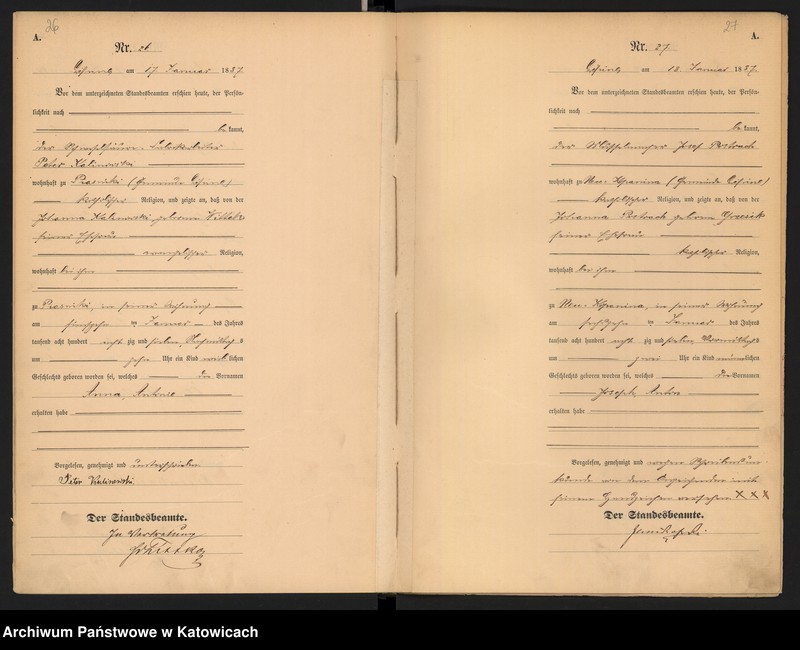 26
A.
Nr. 26
am 17 Januar 1887.
Vor dem unterzeichneten Standesbeamten erschien heute, der Persön-
lichkeit nach
be kannt,
der
Peter Kalinowski
wohnhaft zu (Gemeinde
katholischer Religion, und zeigte an, daß von der
Johanna Kalinowski, geborene
seiner Ehefrau
evangelischer Religion,
wohnhaft bei ihm
zu in seiner Wohnung
am fünfzehn ten Januar des Jahres
tausend acht hundert acht zig und sieben, Nachmittags
um zehn Uhr ein Kind weiblichen
Geschlechts geboren worden sei, welches die Vornamen
Anna, Antonie
erhalten habe
Vorgelesen, genehmigt und unterschrieben
Peter Kalinowski
Der Standesbeamte.
In Vertretung
27
A.
Nr. 27
am 18. Januar 1887.
Vor dem unterzeichneten Standesbeamten erschien heute, der Persön-
lichkeit nach
be kannt,
der Josef
wohnhaft zu (Gemeinde
katholischer Religion, und zeigte an, daß von der
Johanna geborene
seiner Ehefrau
katholischer Religion,
wohnhaft bei ihm
zu in seiner Wohnung
am sechszehn ten Januar des Jahres
tausend acht hundert acht zig und sieben, Vormittags
um zwei Uhr ein Kind männlichen
Geschlechts geboren worden sei, welches die Vornamen
Joseph, Anton
erhalten habe
Vorgelesen, genehmigt und wegen Schreibensun-
kunde von dem Anzeigenden mit
seinem Handzeichen versehen XXX
Der Standesbeamte.
Archiwum Państwowe w Katowicach